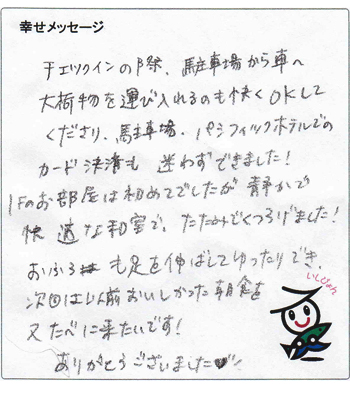 幸せメッセージ
チェックインの際、駐車場から車へ
大荷物を運び入れるのも快くOKして
くださり、駐車場、パシフィックホテルでの
カード決済も迷わずできました!
1Fのお部屋は初めてでしたが静かで
快適な和室で、たたみでくつろげました!
おふろも足を伸ばしてゆったりでき
次回は以前おいしかった朝食を
又たべに来たいです!
ありがとうございました♥